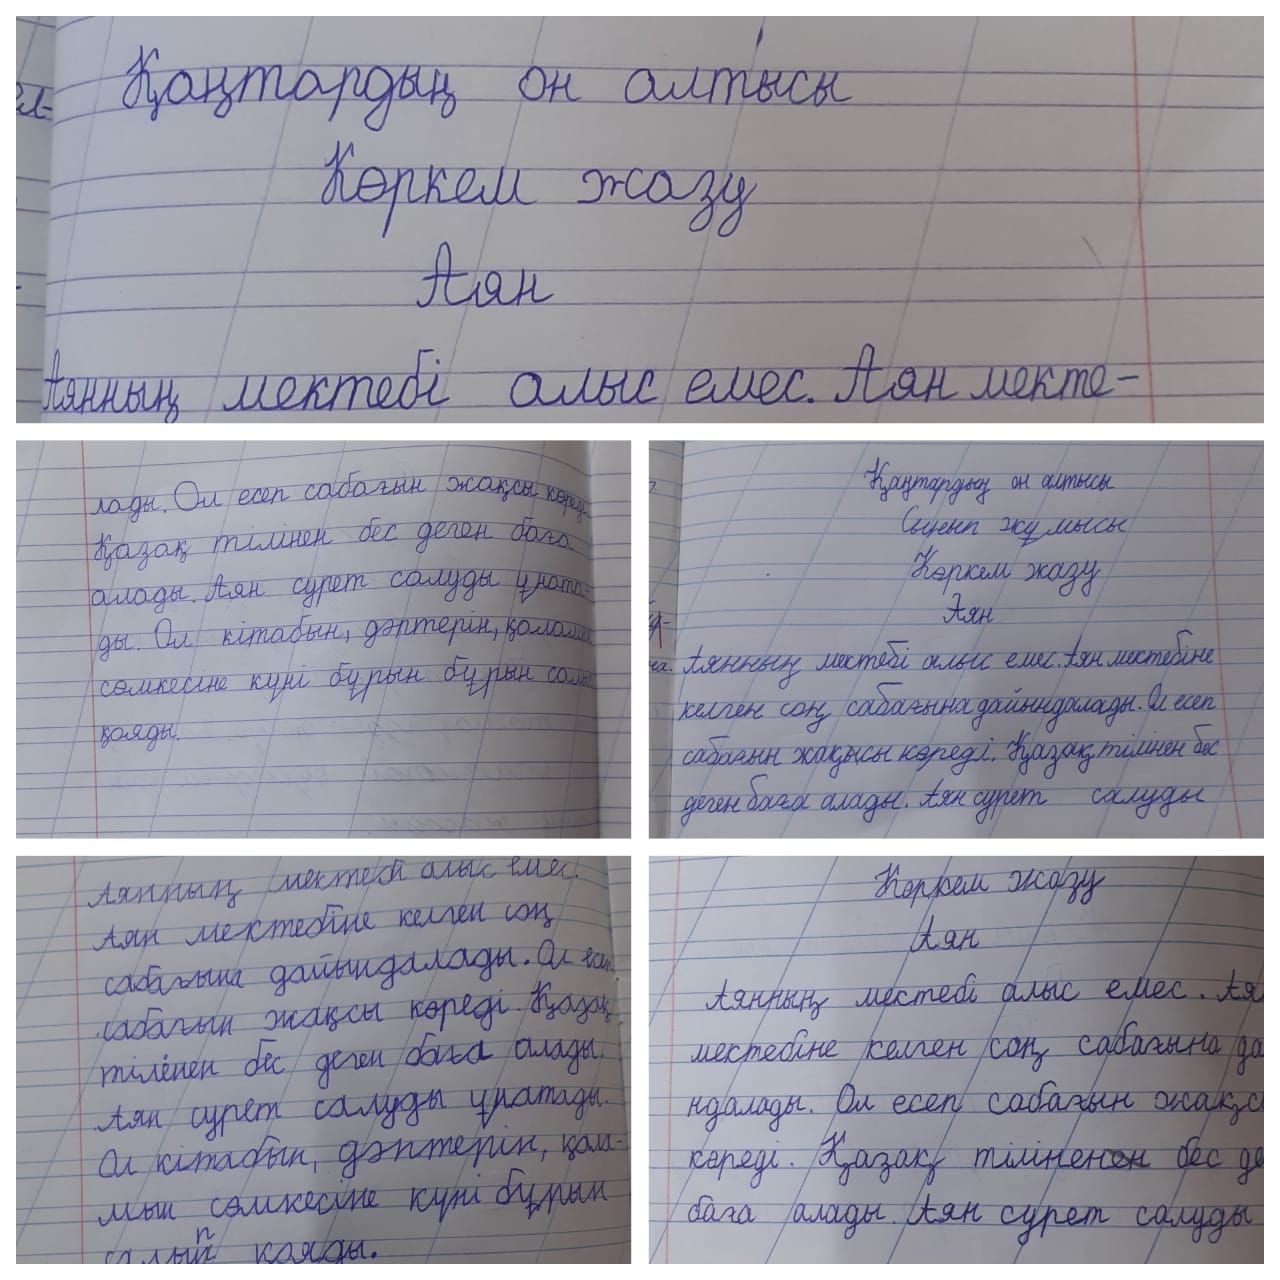 Қаңтардың он алтысы
Көркем жазу
Аян
Аянның мектебі алыс емес. Аян мекте-
лады. Ол есеп сабағын жақсы көреді.
Қазақ тілінен бес деген баға
алады. Аян сурет салуды ұната-
ды. Ол кітабын, дәптерін,
сөмкесіне күні бұрын бұрын салып
қояды.
Қаңтардың он алтысы
Сынып жұмысы
Көркем жазу
Аян
Аянның мектебі алыс емес. Аян мектебіне
келген соң сабағына дайындалады. Ол есеп
сабағын жақысы көреді. Қазақ тілінен бес
деген баға алады. Аян сурет салуды
Аянның мектебі алыс емес.
Аян мектебіне келген соң
сабағына дайындалады. Ол есеп
сабағын жақсы көреді. Қазақ
тілінен бес деген баға алады.
Аян сурет салуды ұнатады.
Ол кітабын, дәптерін, қала-
мын сөмкесіне күні бұрын
салып қояды.
Көркем жазу
Аян
Аянның мектебі алыс емес. Ая
мектебіне келген соң сабағына да
ндалады. Ол есеп сабағын жақс
көреді. Қазақ тілінен бес де
баға алады. Аян сурет салуды